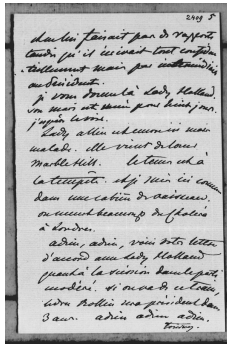 2409 5
on lui faisait pas de rapports
tandis qu'il recevait tout confiden
tiellement mais pas
ou décidant.
je vous donne là Lady Holland.
son mari est venu pour huit jours.
j'espère le voir.
Lady Allice est encore ici mais
malade. elle vient de louer
Marble Hill. le tems est à
la tempête. et je suis ici comme
dans une cabine de vaisseau.
on meurt beaucoup du choléra
à Londres.
adieu, adieu, voici votre lettre
d'accord avec Lady Holland
quant à la scission dans le parti
modéré. si on va de ce train,
Ledru Rollin sera président dans
3 ans. adieu adieu adieu.